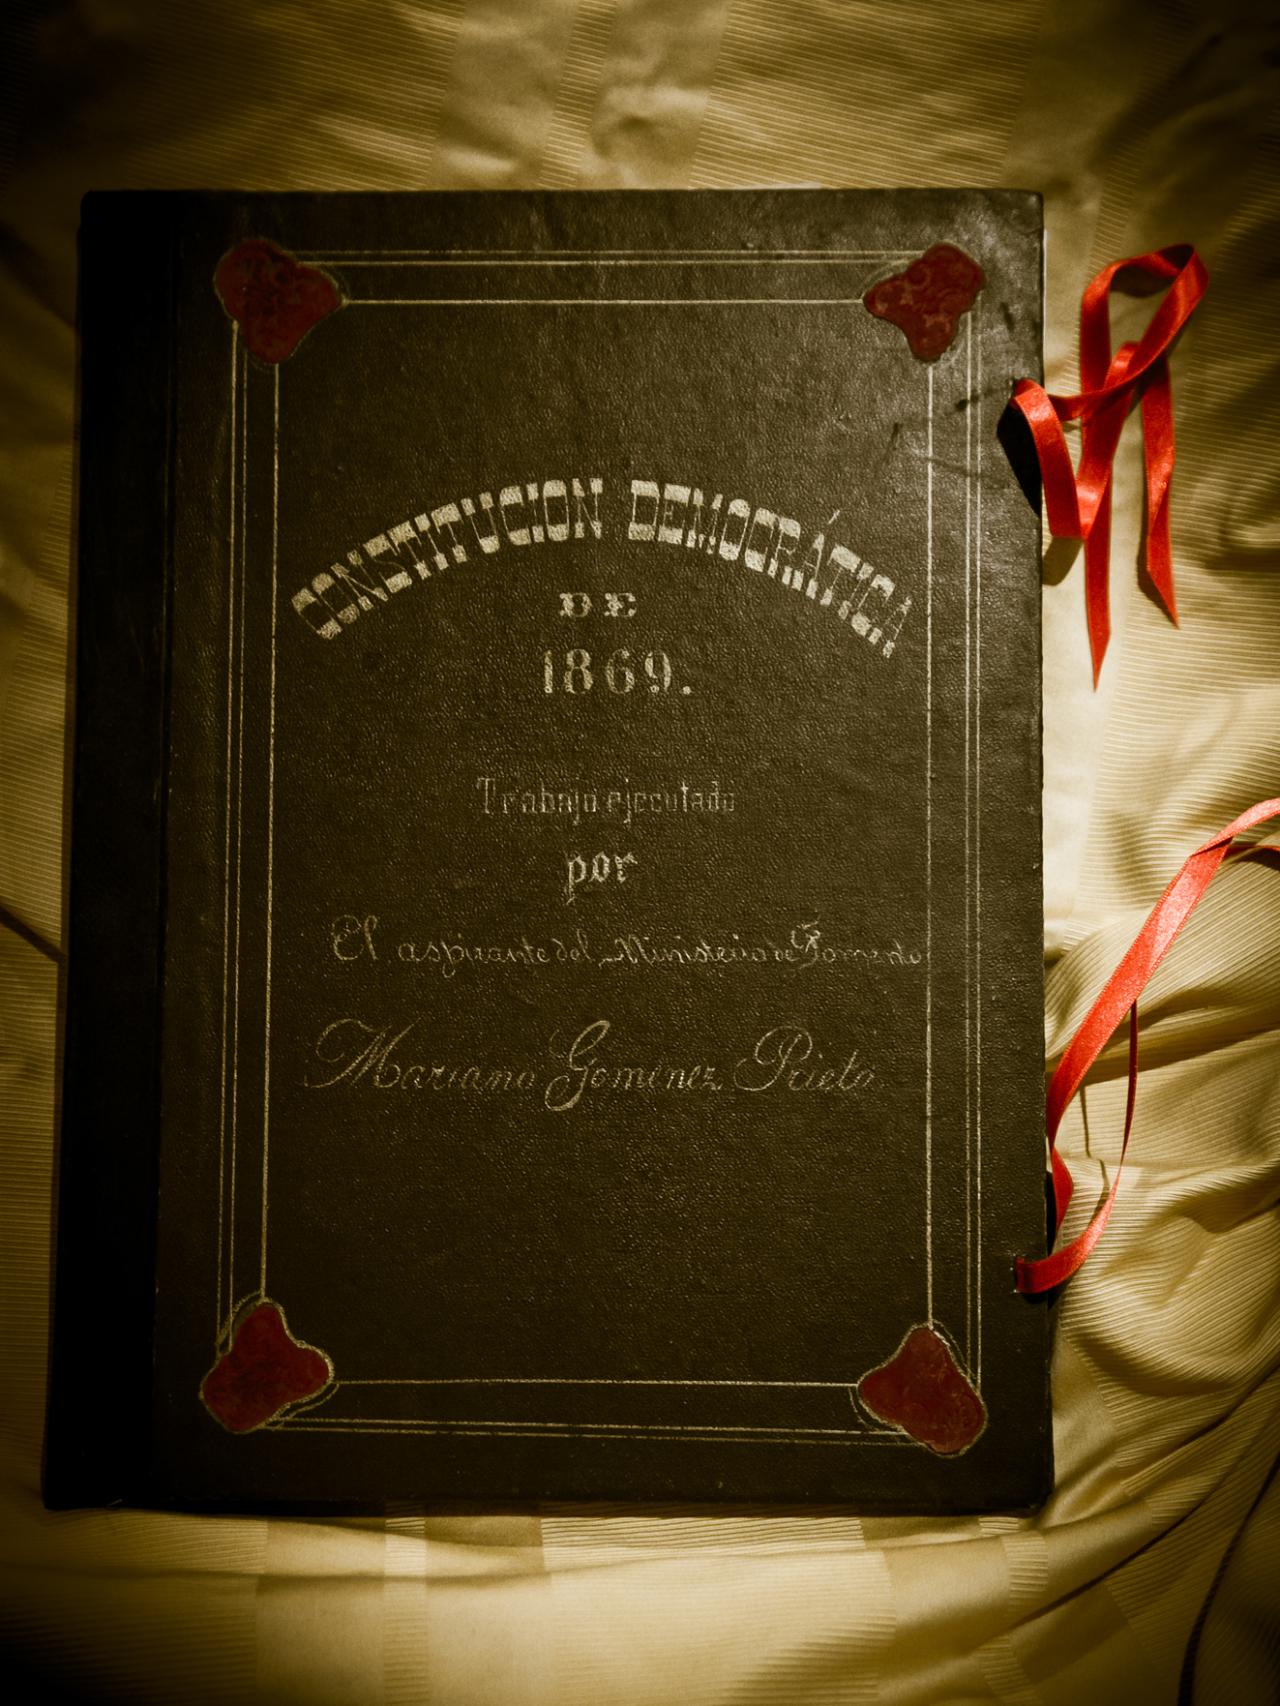 CONSTITUCION DEMOCRÁTICA
DE
1869.
Trabajo ejecutado
por
El aspirante del Ministerio de Fomento
Mariano Goménez Prieto.